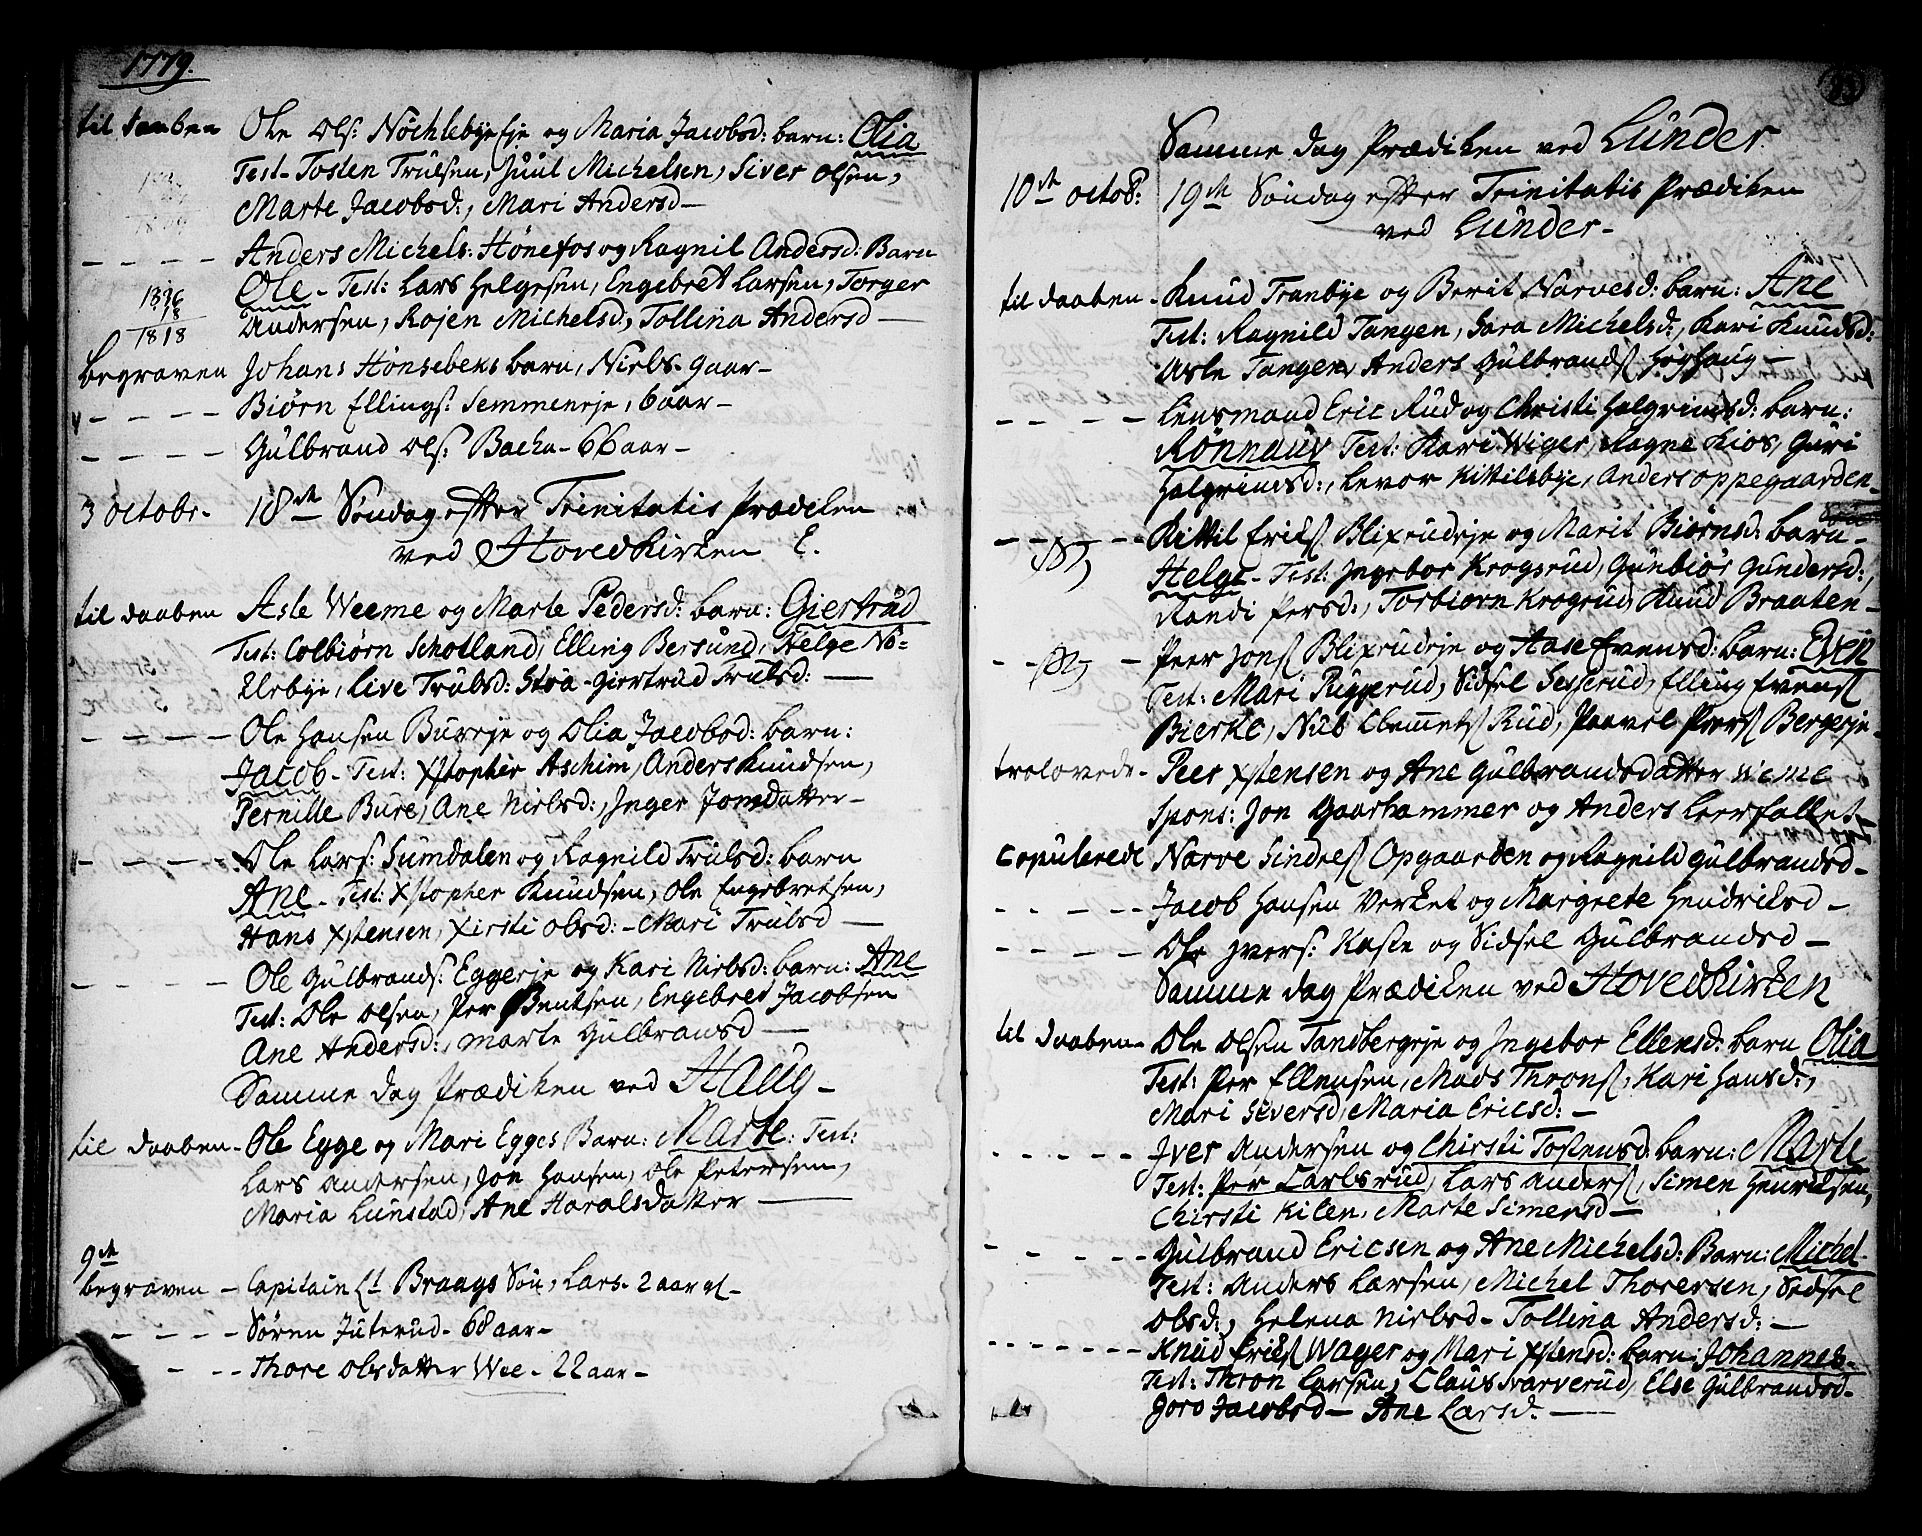 1779.
til daaben Ole Ols: Nöchlebyeeje og Maria Jacobsd: barn: Olia
Test- Tosten Trulsen, Juul Michelsen, Siver Olsen,
Marte Jacobsd:, Mari Andersd-
- - - - Anders Michels: Hönefos og Ragnil Andersd: Barn
Ole- Test: Lars Helgesen, Engebret Larsen, Torger
Andersen, Rojen Michelsd:, Tollina Andersd-
1818
begraven Johans Hönsebeks barn, Niels- ¼ aar-
- - - - Biørn Ellings: Semmeneje, 6 aar-
- - - - Gulbrand Ols: Bacha- 66 aar-
3 octobr. 18de Söndag efter Trinitatis Prædiken
ved Hovedkirken
til daaben Asle Weeme og Marte Pedersd: barn: Giertrud
Test: Colbiørn Schotland, Elling Bersund, Helge Nö-
chlebye, Live Trulsd: Strá- Giertrud Trulsd:
- - - - Ole Hansen Bureje og Olia Jacobsd: barn:
Jacob- Test: Xstopher Aschim, Anders Knudsen,
Pernille Bure, Ane Nielsd:, Inger Jonsdatter-
- - - - Ole Lars: Sumdalen og Ragnild Trulsd: barn
Ane- Test: Xstopher Knudsen, Ole Engebretsen,
Hans Xstensen, Kirsti Olsd:- Mari Trulsd
- - - - Ole Gulbrands: Eggeeje og Kari Nielsd: barn: Ane
Test: Ole Olsen, Per Bentsen, Engebret Jacobsen
Ane Andersd:, Marte Gulbransd
Samme dag Prædiken ved Haug-
til daaben- Ole Egge og Mari Egges Barn: Marte: Test:
Lars Andersen, Jon Hansen, Ole Petersen,
Maria Lunstad, Ane Haralsdatter
9de
begraven- Capitain Lt Braags Sön, Lars- 2 aar gl-
- - - - Sören Juterud- 68 aar-
- - - Thore Olsdatter Wee- 22 aar-
Samme dag Prædiken ved Lunder
10de octob: 19de Söndag efter Trinitatis Prædiken
ved Lunder-
til daaben- Knud Tranbye og Berit Narvesd: barn: Ane
Test: Ragnild Tangen, Sara Michelsd:, Kari Knudsd:
Asle Tangen, Anders Gulbrands: Høghaug-
- - - - Lensmand Eric Rud og Christi Halgrimsd: barn:
Rönnaug Test: Kari Wiger, Ragne Kios, Guri
Halgrimsd:, Levor Kittilsbye, Anders Oppegaarden-
- - - - Kittil Eriks: Blixrudeje og Marit Biørnsd: barn-
Helge- Test: Ingebor Krogsrud, Gunbiør Gundersd:,
Randi Persd:, Torbiørn Krogsrud, Knud Braaten-
- - - Peer Jons: Blixrudeje og Aase Evensd: barn: Even
Test: Mari Ruggerud, Sidsel Sesserud, Elling Evens:
Bierke, Nub Clemmets: Rud, Paavel Peers: Bergeeje-
trolovede- Peer Xstensen og Ane Gulbrandsdatter Weme
Spons: Jon Gaarhammer og Anders Leerfallet-
copulerede Narve Sindres: Opgaarden og Ragnild Gulbrandsd-
- - - - Jacob Hansen Verket og Margrete Hendriksd-
- - - - Ole Ivers: Kaste og Sidsel Gulbrandsd-
Samme dag Prædiken ved Hovedkirken
til daaben- Ole Olsen Tandbergeje og Ingebor Ellensd: barn Olia
Test: Per Ellensen, Mads Throns:, Kari Hansd:,
Mari Siversd, Maria Ericsd:-
- - - - Iver Andersen og Chirsti Tostensd: barn: Marte
Test: Per Carlsrud, Lars Anders:, Simen Henricksen,
Chirsti Kilen, Marte Simensd-
- - - - Gulbrand Ericsen og Ane Michelsd: Barn: Michel-
Test: Anders Larsen, Michel Thoresen, Sidsel
Olsd:, Helena Nielsd- Tollina Andersd:-
- - - - Knud Eriks: Wager og Mari Xstensd: barn: Johannes-
Test: Thron Larsen, Claus Svarverud, Else Gulbrandsd-
Joro Jacobsd- Ane Larsd:-